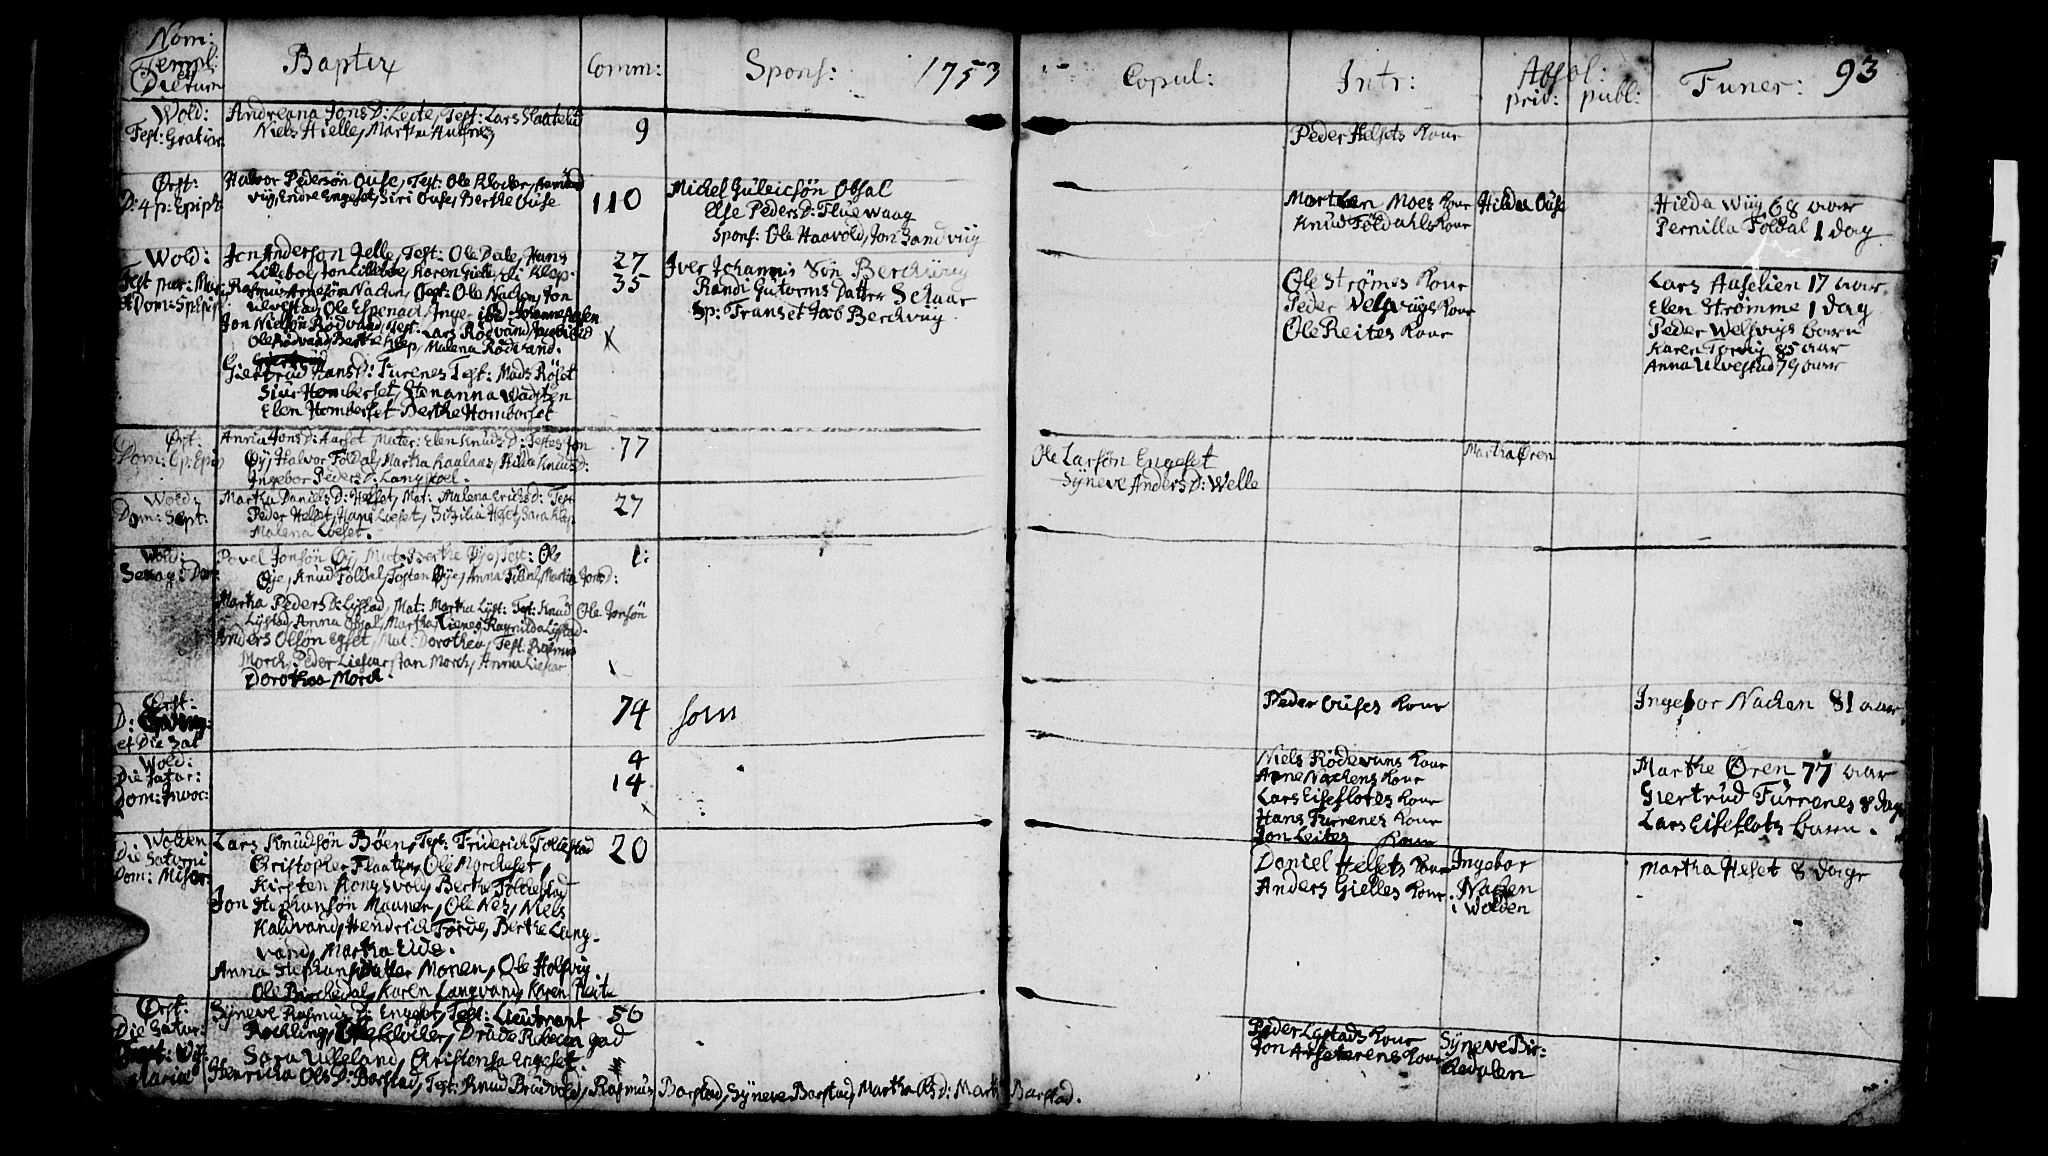 Nom:
Templ:
Dierum
Baptiz
Comm:
Spons:
1753
Copul:
Intr:
Absol:
priv:
publ:
Funer:
93
Wold:
Fest:
Andreana Jons D: Leite, Test: Lars
Niels Hielle, Martha
9
Peder Helsets Kone
Ørst:
D: 4 p: Epiph:
Halvor Pedersön Ouse, Test: Ole Klocker,
Endre Engeset, Siri Ouse, Berthe Ouse
110
Michel Guleicsön Opsal
Else Peders D: Fluewaag
Spons: Ole Haavold, Jon Sandvüg
Moes Kone
Knud Földahls Kone
Hilda Ouse
Hilda Wüg 68 aar
Pernilla Foldal 1 dag
Wold:
Fest pur: Mar:
Jon Anderson Jelle, Test: Ole Dale, Hans
Lilleboe, Jon Lilleboe, Karen Gielle,
Nacken, Test: Ole Nacken, Jon
Ole Espenact, Inge
Jon Nielsön Rödvand, Test: Lars Rödvand,
Ole Rödvand, Berthe Klep, Malena Rödvand.
Giertrud Hans D: Furenes Test: Mads Röset
Siur Homberset, Stenanna Wadsten
Elen Homberset Berthe Homborset
27
35
Iver Johannis Sön Berckvüg
Randi Gutorms Datter Setaar
Sp: Transet Jacob Berckvüg.
Ole Strömes Kone
Peder Velsvügs Kone
Ole Reites Kone
Lars Aaselien 17 aar
Elen Strömme 1 dag
Peder Welsvigs barn
Karen Torvig 85 aar
Anna Ulvestad 79 aar
Ørst:
Dom: 6 p: Epip
Anna Jons D: Aarset Mater: Elen Knuds D: Testes Jon
Øÿ, Halvor Földal, Martha Kaalaas, Hilda Knuds D:
Ingebor Peders D: Langskoel.
77
Ole Larsön Engeset
Sÿneve Anders D: Welle
Martha Øren
Wold:
Dom: Sept:
Martha Daniels D: Helset, Mat: Malena Erichs D: Test
Peder Helset, Hans Lieset, Zitzilia Heset, Sara Klep
Malena Loeset.
27
Wold:
Sexag: Dom:
Povel Jonsön Øÿ, Mat: Berthe Øÿe, Test: Ole
Øÿe, Knud Földal, Tosten Øÿe, Anna Martha Jons D:
Martha Peders D: Lÿstad, Mat: Martha Lÿst: Test: Knud Ole Jonsön
Lÿstad, Anna Opsal, Martha Lienes, Ragnilda Lÿstad.
Anders Olson Egset, Mat: Dorothea, Test: Rasmus
Morch, Peder Morch, Anna
Dorothea Morch.
1:
Ørst:
D:
et Die Sat
74
Peder Ouses Kone
Ingebor Nacken 81 aar
Wold:
Die Satur:
Dom: Invoc:
4
14
Niels Rödevans Kone
Arne Nackens Kone
Lars Eiseflotes Kone
Hans Furrenes Kone
Jon Leites Kone
Marthe Øren 77 aar
Giertrud Furrenes 8 dag
Lars Eiseflots barn.
Wolden
Die Saturni
Dom: Miser:
Lars Knudsön Böen, Test: Friderich Follestad
Christopher Flaaten, Ole Morcheset,
Kirsten Kongsvold, Berthe Folckestad
Jon Stephansön Maurer, Ole Nes, Niels
Kalvvand, Hendrich Torve, Berthe Lang-
vand, Martha Eide.
Anna Stephansdatter Monen, Ole Holsvig
Ole Birckedal, Karen Langvand, Karen Reite
20
Daniel Helsets Kone
Anders Gielles Kone
Ingebor
Nacken
i Wolden
Martha Heset 8 dage
Ørst:
Die Satur:
Maria
Sÿneve Rasmus D: Engeset, Test: Lieutnant
Drude Rebecca Gad
Sara Ulleland, Christensa Engeset.
Henricka Ols D: Barstad, Test: Knud Brudvold, Rasmus Barstad, Sÿneve Barstad, Martha Ols D: Marth Barstad.
56
Peder Lÿstads Kone
Jon Kone
Sÿneve Bir-
kedalen